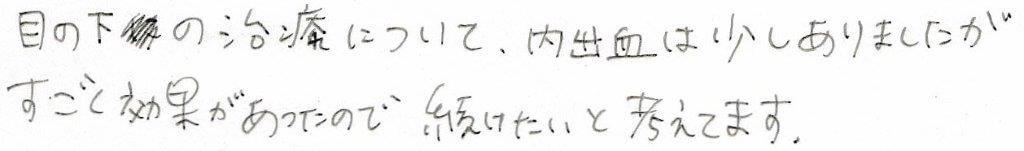 目の下の治療について、内出血は少しありましたが
すごく効果があったので続けたいと考えてます。